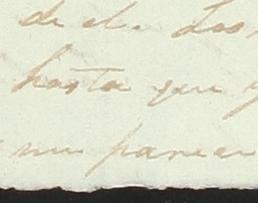 de el. Los
hasta que y
mi parecer